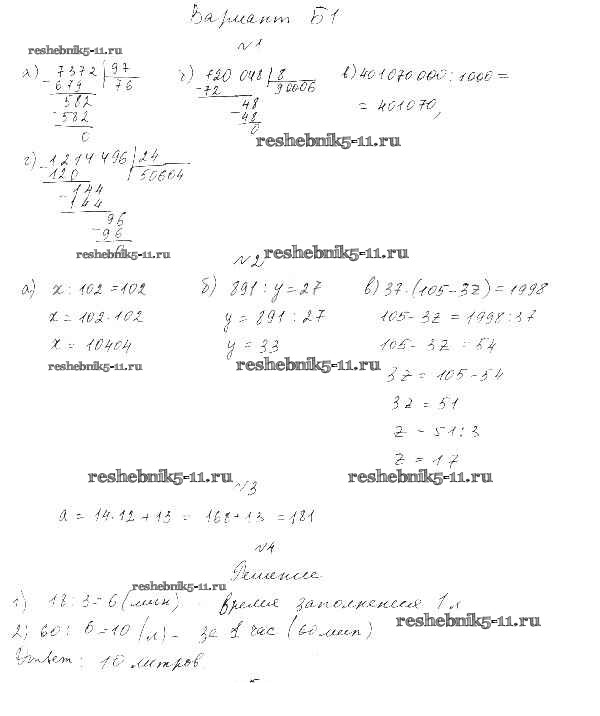 Вариант Б1
№1
reshebnik5-11.ru
а) 7372 | 97
- 679 76
582
- 582
0
120 048 | 8
- 72 90006
48
- 48
0
в) 401070000 : 1000 =
= 401070,
reshebnik5-11.ru
г) 1214496 | 24
- 120 50604
144
- 144
96
- 96
reshebnik5-11.ru
№2
reshebnik5-11.ru
а) x : 102 = 102
x = 102 · 102
x = 10404
reshebnik5-11.ru
б) 891 : y = 27
y = 891 : 27
y = 33
reshebnik5-11.ru
в) 37 · (105 - 3z) = 1998
105 - 3z = 1998 : 37
105 - 3z = 54
3z = 105 - 54
3z = 51
z = 51 : 3
z = 17
reshebnik5-11.ru
reshebnik5-11.ru
№3
a = 14 · 12 + 13 = 168 + 13 = 181
№4
Решение
reshebnik5-11.ru
1) 18 : 3 = 6 (мин) - время заполнения 1 л
2) 60 : 6 = 10 (л) - за 1 час (60 мин)
reshebnik5-11.ru
Ответ: 10 литров